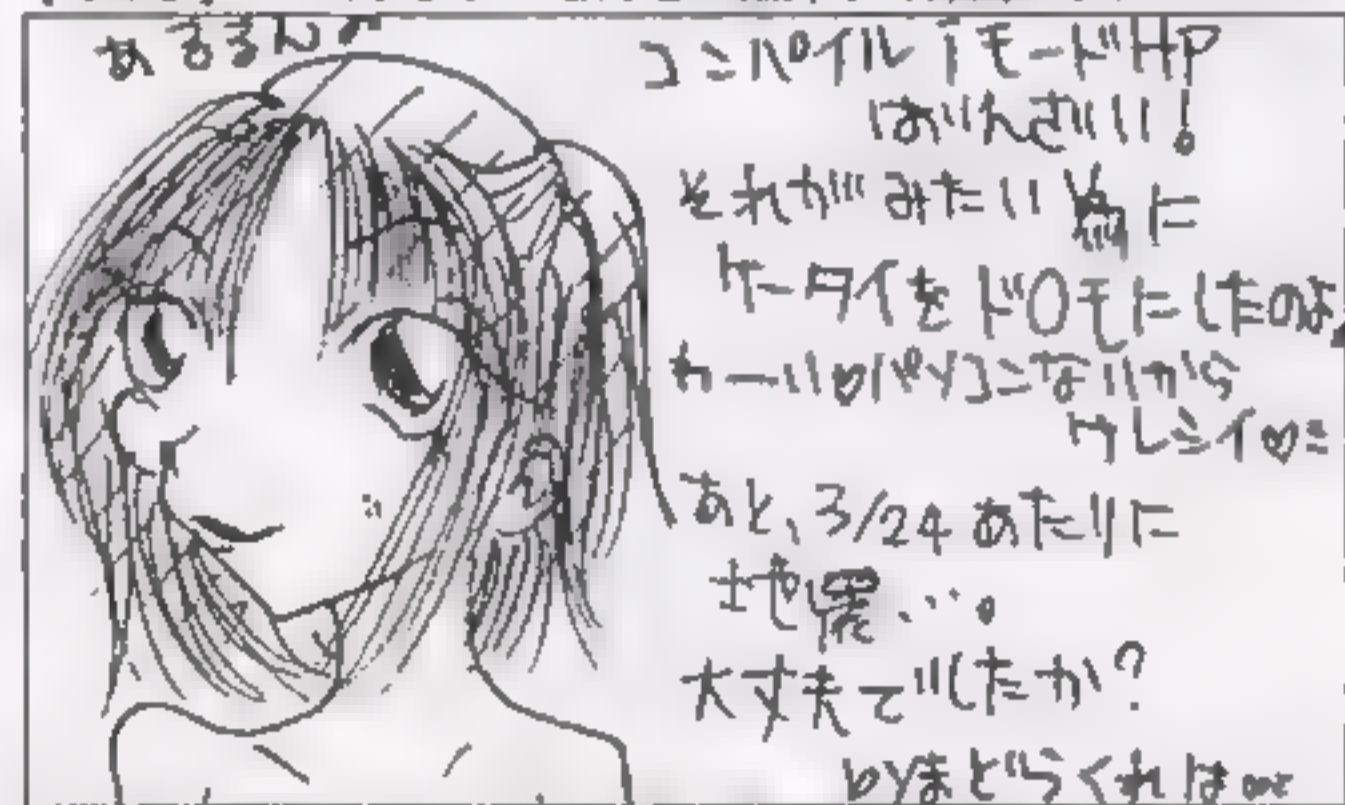 あるるん
コンパイル iモードHP
ばんざい!
それがみたい為に
ケータイをド〇モにしたのよ
わーい♡パソコンないから
ウレシイ♡
あと、3/24あたりに
地震…。
大丈夫でしたか?
byまどらくれは